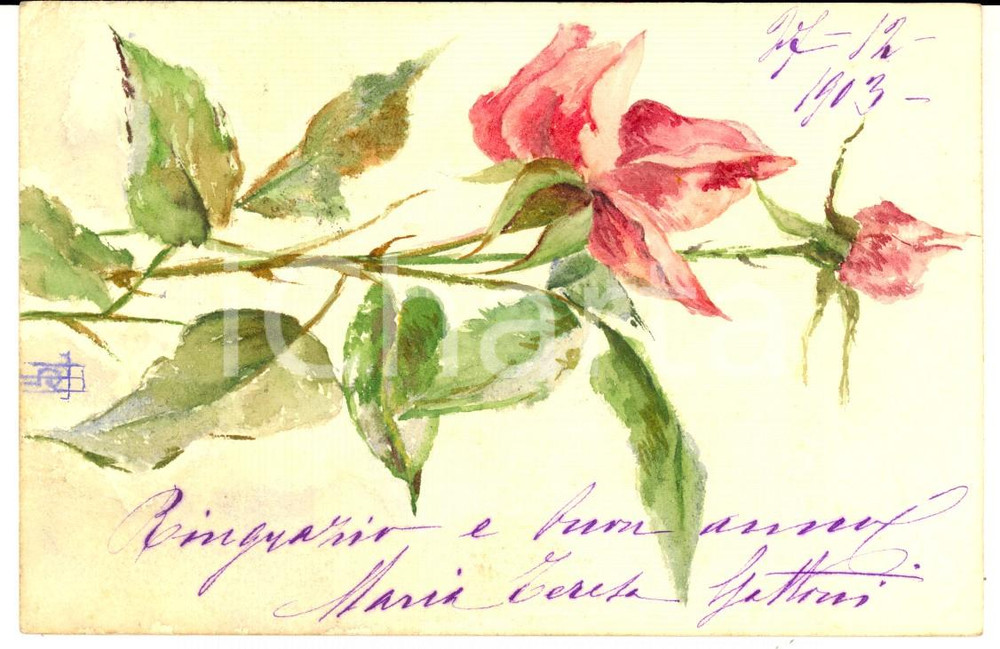 27-12-
1903-
iCharta
Ringrazio e buon anno
Maria Teresa Gattoni